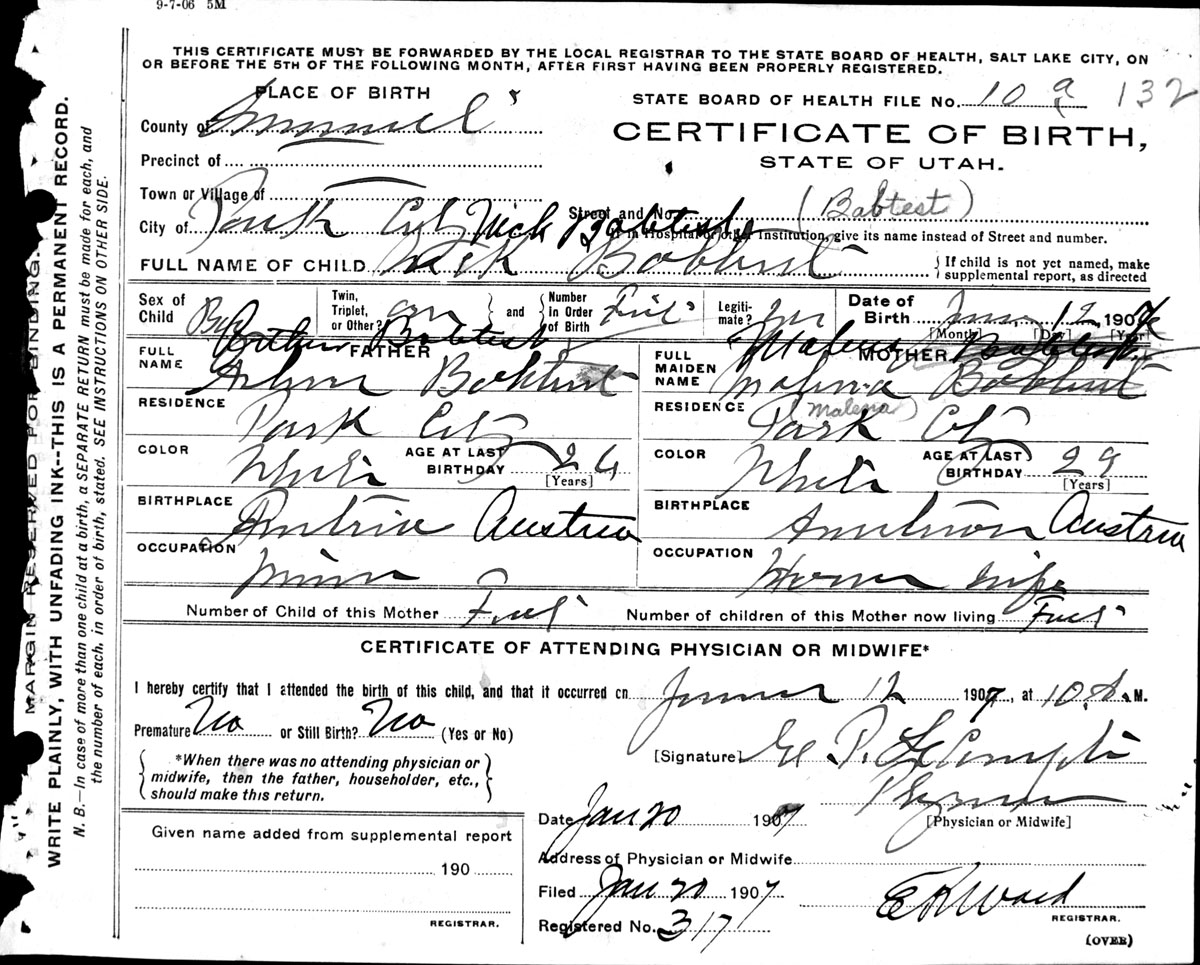 9-7-06 5M
THIS CERTIFICATE MUST BE FORWARDED BY THE LOCAL REGISTRAR TO THE STATE BOARD OF HEALTH, SALT LAKE CITY, ON
OR BEFORE THE 5TH OF THE FOLLOWING MONTH, AFTER FIRST HAVING BEEN PROPERLY REGISTERED.
MARGIN RESERVED FOR BINDING.
WRITE PLAINLY, WITH UNFADING INK--THIS IS A PERMANENT RECORD.
N. B.—In case of more than one child at a birth, a SEPARATE RETURN must be made for each, and
the number of each, in order of birth, stated. SEE INSTRUCTIONS ON OTHER SIDE.
PLACE OF BIRTH
STATE BOARD OF HEALTH FILE No. 10 a 132
County of Summit
CERTIFICATE OF BIRTH,
Precinct of
STATE OF UTAH.
Town or Village of
Street and No. (Babtest)
City of Park City Nick Babtest
If in Hospital or other Institution, give its name instead of Street and number.
FULL NAME OF CHILD Nick
If child is not yet named, make
supplemental report, as directed
Sex of Child Boy
Twin, Triplet, or Other?
and
Number In Order of Birth
Legiti- mate?
Date of Birth 12 1907
[Month] [Day] [Year]
Babtest
FATHER
MOTHER Babtest
FULL NAME
FULL MAIDEN NAME
RESIDENCE Park City
RESIDENCE (Malena) Park City
COLOR White AGE AT LAST BIRTHDAY 26 [Years]
COLOR White AGE AT LAST BIRTHDAY 29 [Years]
BIRTHPLACE Austria
BIRTHPLACE Austria
OCCUPATION Miner
OCCUPATION House wife
Number of Child of this Mother First
Number of children of this Mother now living First
CERTIFICATE OF ATTENDING PHYSICIAN OR MIDWIFE*
I hereby certify that I attended the birth of this child, and that it occurred on 12 1907, at 10 A. M.
Premature No or Still Birth? No (Yes or No)
[Signature]
*When there was no attending physician or
midwife, then the father, householder, etc.,
should make this return.
[Physician or Midwife]
Date Jan 20 1907
Given name added from supplemental report
190
REGISTRAR.
Address of Physician or Midwife
Filed Jan 20 1907
E H Ward
REGISTRAR.
Registered No. 317
(OVER)